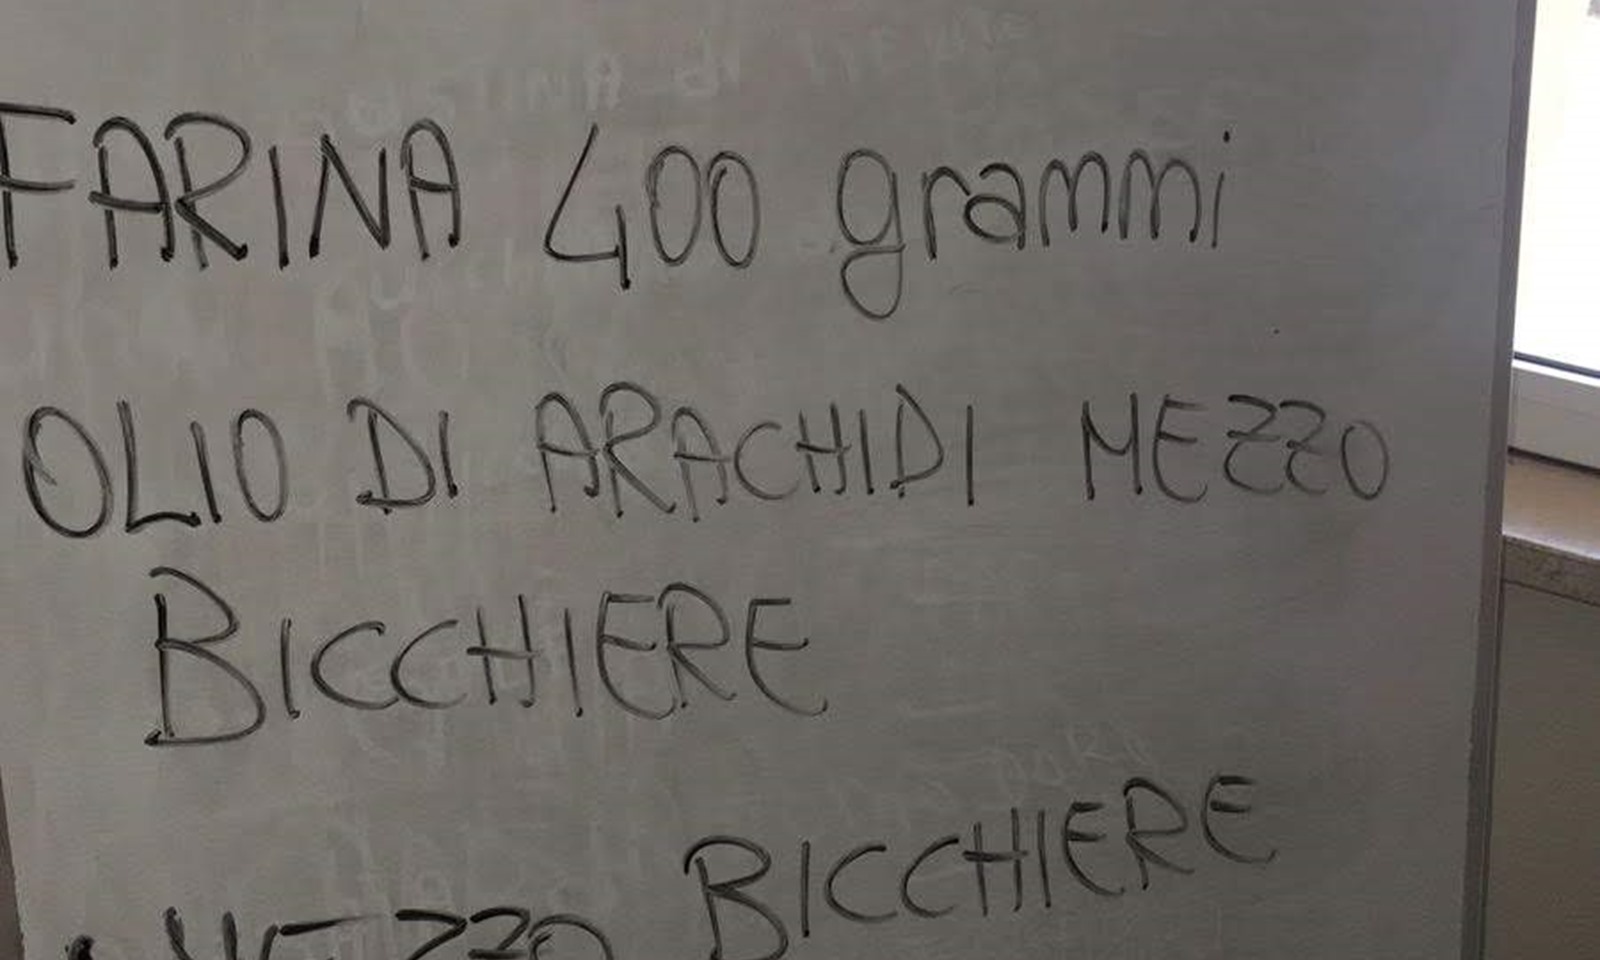 FARINA 400 grammi
OLIO DI ARACHIDI MEZZO
BICCHIERE
MEZZO BICCHIERE